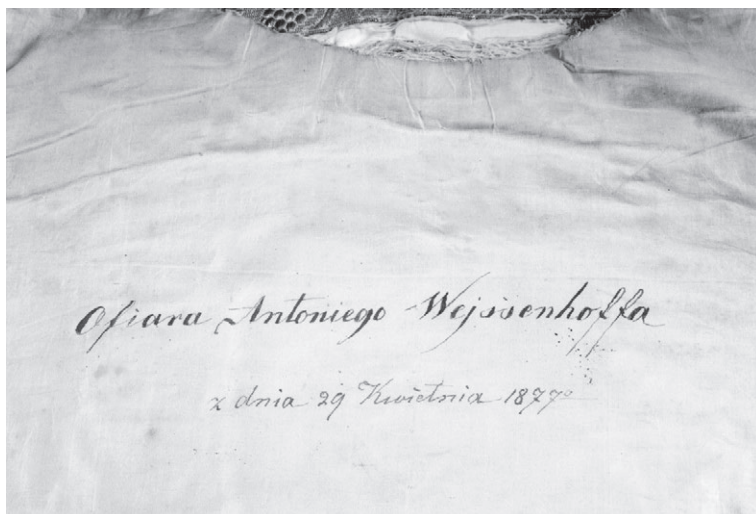 Ofiara Antoniego Wejssenhoffa
z dnia 29 Kwietnia 1877º